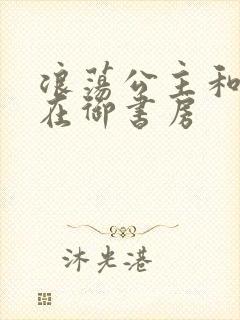 浪荡公主和
在御书房
沐光港